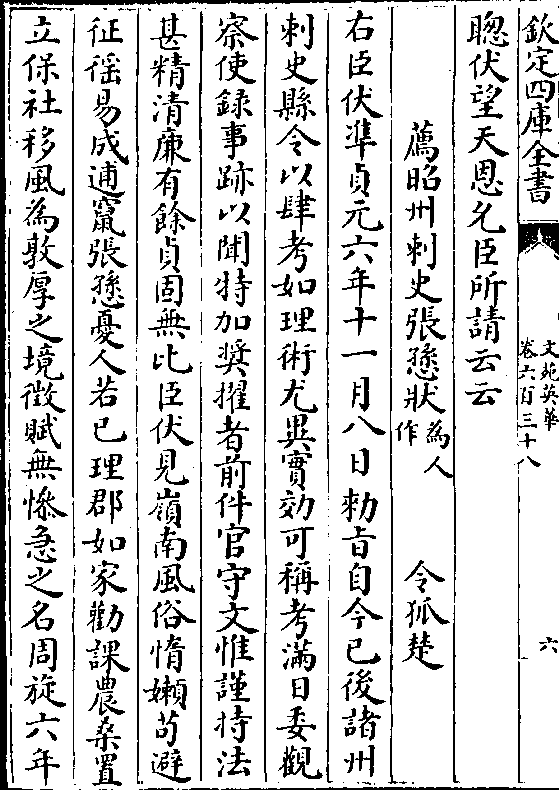 欽定四庫全書
文苑英華
卷六百三十八
六
聰伏望天恩允臣所請云云
薦昭州刺史張愻狀 為人作 令狐楚
右臣伏準貞元六年十一月八日勅㫖自今已後諸州
刺史縣令以肆考如理術尤異實効可稱考滿日委觀
察使録事跡以聞特加奨擢者前件官守文惟謹持法
甚精清廉有餘貞固無比臣伏見嶺南風俗惰嬾苟避
征徭易成逋竄張愻憂人若已理郡如家勸課農桑置
立保社移風為敦厚之境徴賦無慘急之名周旋六年